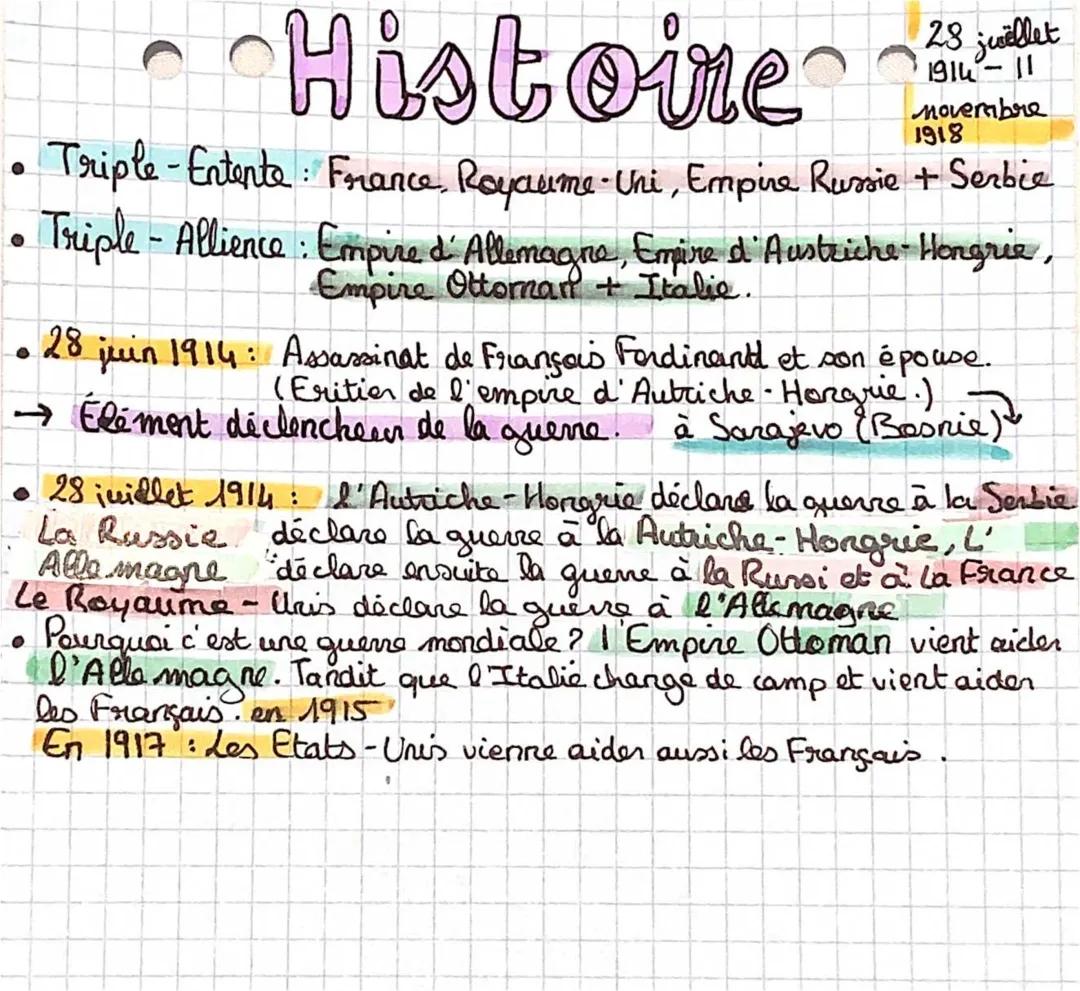 Histoire
28 juillet
1914 - 11
novembre
1918
• Triple-Entente : France, Royaume-Uni, Empire Russie + Serbie
• Triple-Allience : Empire d'Allemagne, Empire d'Austriche-Hongrie,
Empire Ottoman + Italie.
• 28 juin 1914 : Assassinat de François Ferdinand et son épouse.
(Eritier de l'empire d'Autriche-Hongrie.)
→ Élément déclencheur de la guerre. à Sarajevo (Bosnie)
• 28 juillet 1914 : l'Autriche-Hongrie déclare la guerre à la Serbie
La Russie déclare la guerre à la Autriche-Hongrie, L'
Allemagne déclare ensuite la guerre à la Russi et à la France
Le Royaume-Unis déclare la guerre à l'Allemagne
• Pourquoi c'est une guerre mondiale ? l'Empire Ottoman vient aider
l'Allemagne. Tandit que l'Italie change de camp et vient aider
les Français. en 1915
En 1917 : Les Etats-Unis vienne aider aussi les Français.